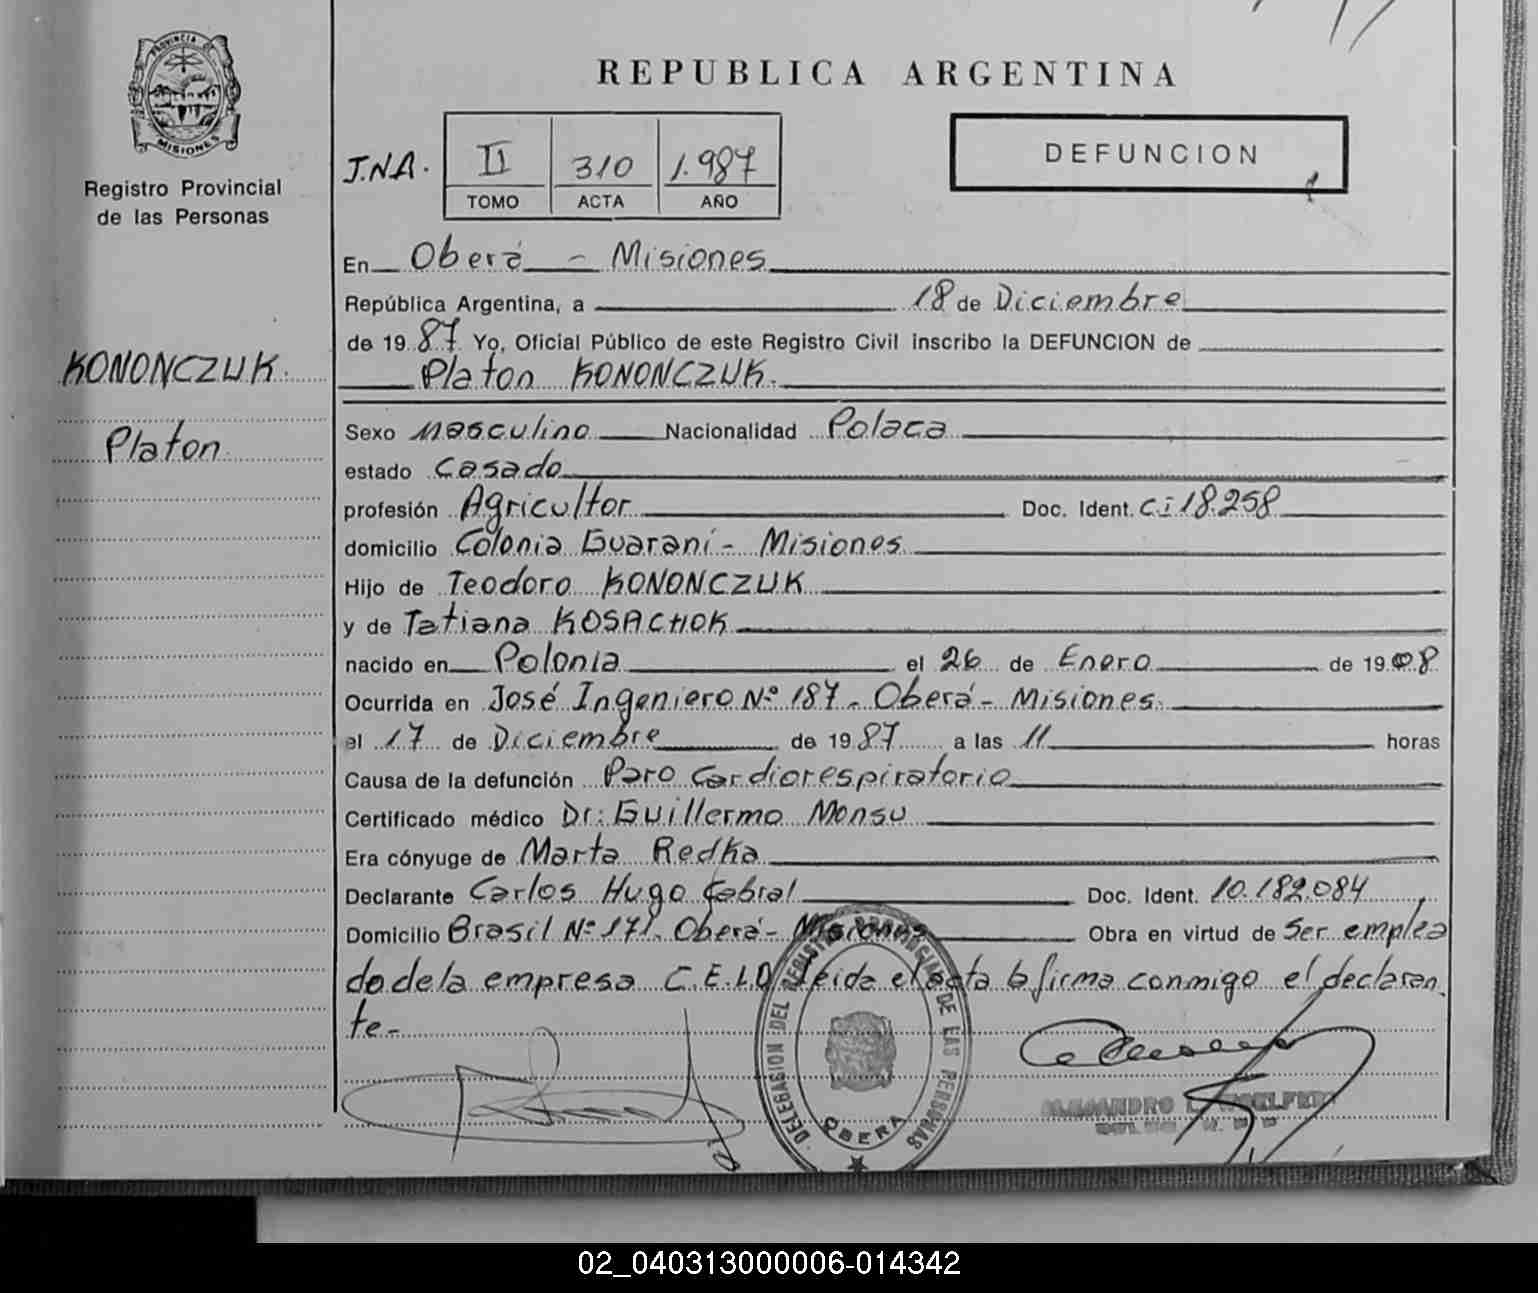 PROVINCIA DE
MISIONES
Registro Provincial
de las Personas
KONONCZUK.
Platon
REPUBLICA ARGENTINA
DEFUNCION
J.N.A. II 310 1.987
TOMO ACTA AÑO
En Oberá - Misiones
República Argentina, a 18 de Diciembre
de 19 87 Yo, Oficial Público de este Registro Civil inscribo la DEFUNCION de
Platon KONONCZUK.
Sexo Masculino Nacionalidad Polaca
estado Casado
profesión Agricultor Doc. Ident. Ci 18.258
domicilio Colonia Guaraní - Misiones
Hijo de Teodoro KONONCZUK
y de Tatiana KOSACHOK
nacido en Polonia el 26 de Enero de 1908
Ocurrida en José Ingeniero Nº 187 - Oberá - Misiones.
el 17 de Diciembre de 19 87 a las 11 horas
Causa de la defunción Paro Cardiorespiratorio
Certificado médico Dr: Guillermo Monsu
Era cónyuge de Marta Redka
Declarante Carlos Hugo Cabral Doc. Ident. 10.182.084
Domicilio Brasil Nº 171. Oberá - Misiones Obra en virtud de Ser emplea
do de la empresa C.E.L.O leida el acta la firma conmigo el declaran
te-
DELEGACION DEL REGISTRO PROVINCIAL DE LAS PERSONAS
OBERA
02_040313000006-014342